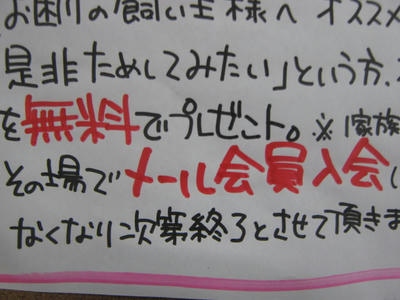 お困りの飼い主様へ オススメ
是非ためしてみたい」という方、
を無料でプレゼント。※1家族
その場でメール会員入会
なくなり次第終了とさせて頂きま